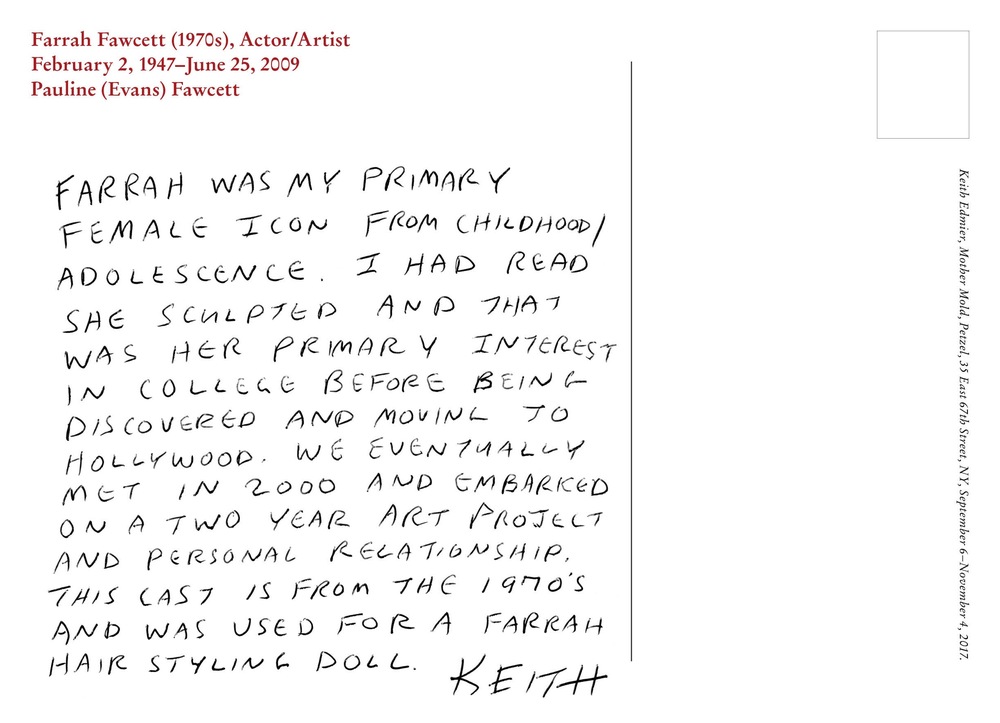 Farrah Fawcett (1970s), Actor/Artist
February 2, 1947–June 25, 2009
Pauline (Evans) Fawcett
FARRAH WAS MY PRIMARY
FEMALE ICON FROM CHILDHOOD/
ADOLESCENCE. I HAD READ
SHE SCULPTED AND THAT
WAS HER PRIMARY INTEREST
IN COLLEGE BEFORE BEING
DISCOVERED AND MOVING TO
HOLLYWOOD. WE EVENTUALLY
MET IN 2000 AND EMBARKED
ON A TWO YEAR ART PROJECT
AND PERSONAL RELATIONSHIP.
THIS CAST IS FROM THE 1970'S
AND WAS USED FOR A FARRAH
HAIR STYLING DOLL.
KEITH
Keith Edmier, Mother Mold, Petzel, 35 East 67th Street, NY, September 6–November 4, 2017.